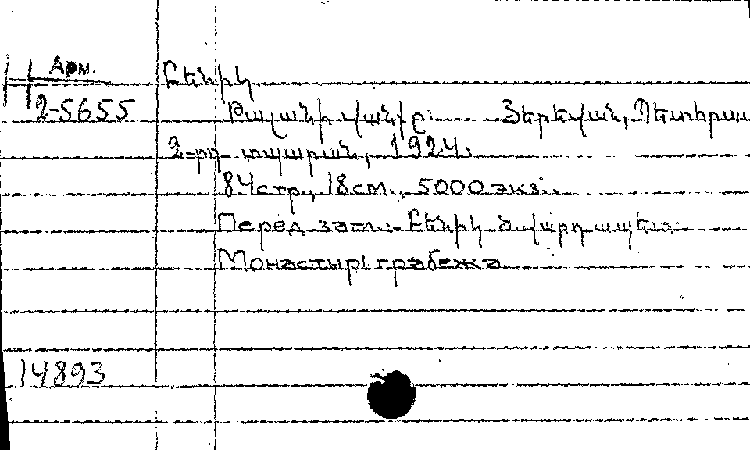 Арм.
2-5655
Բենիկ
Թալանի վանքը. Յերեվան, Պետհրատ
2-րդ տպարան, 1924.
84 стр., 18 см., 5000 экз.
Перед загл.: Բենիկ Ծ. վարդապետ
Монастырь грабежа
14893